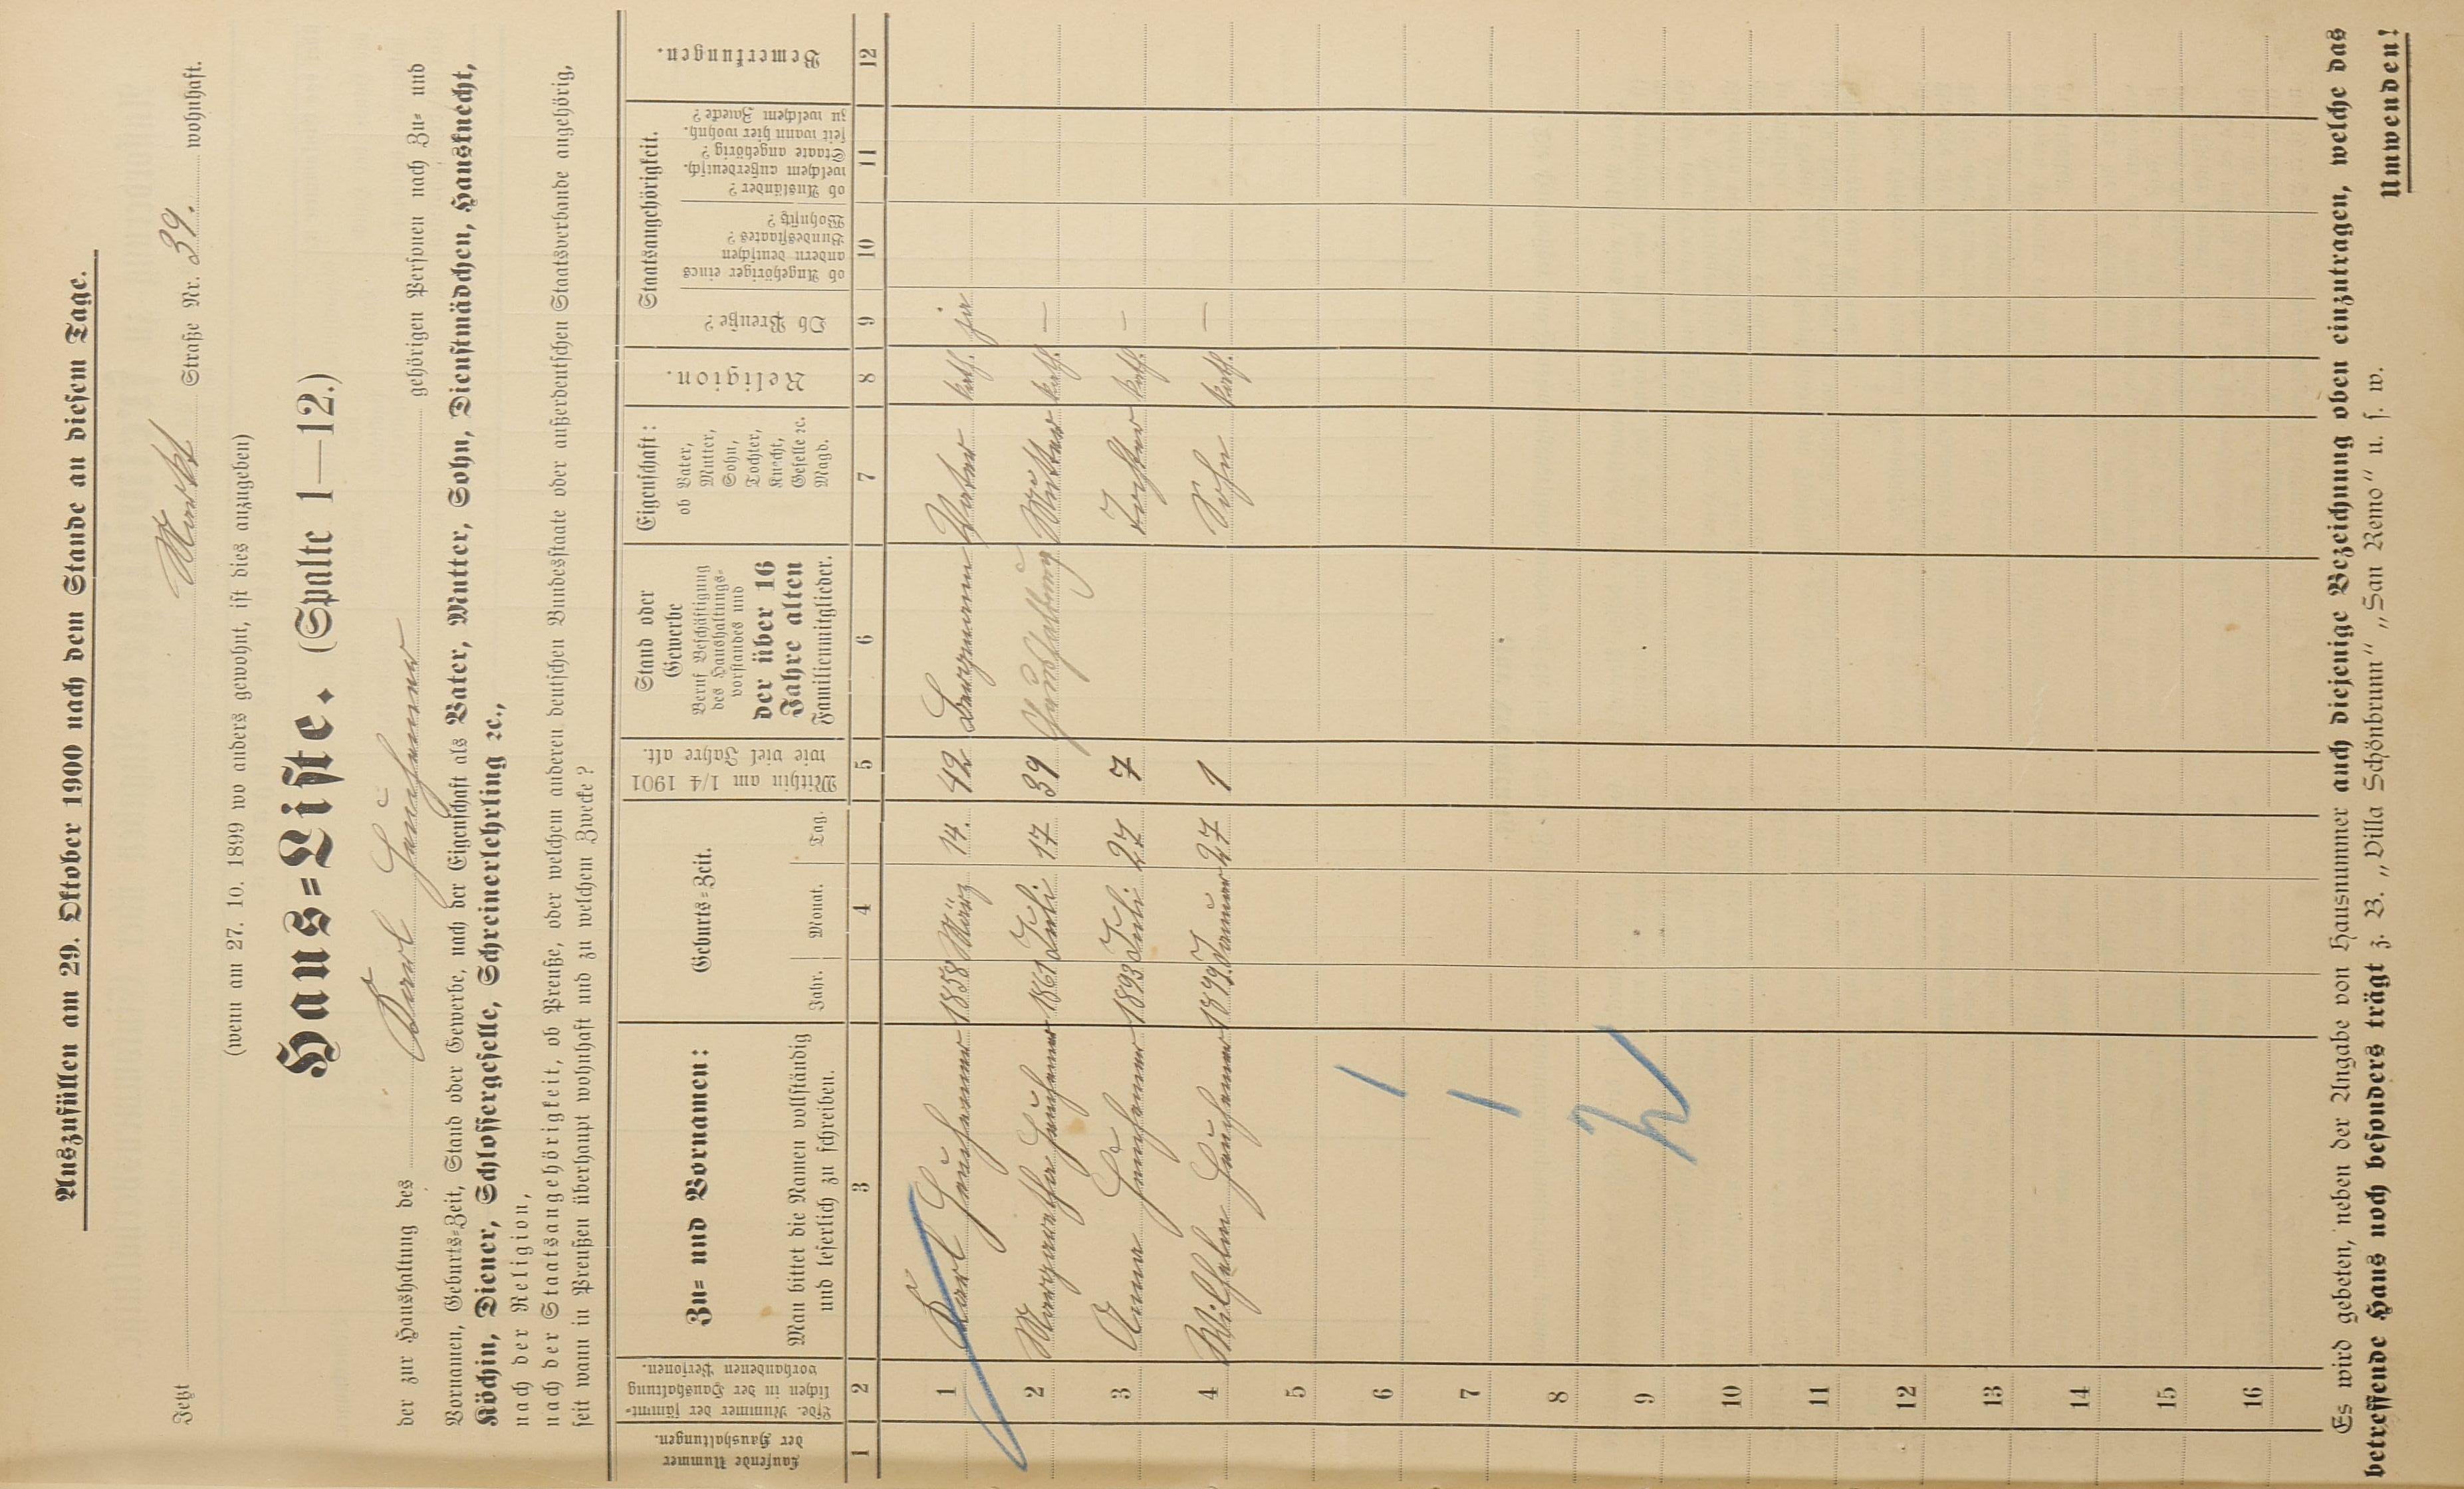 Auszufüllen am 29. Oktober 1900 nach dem Stande an diesem Tage.
Jetzt Markt Straße Nr. 39. wohnhaft.
(wenn am 27. 10. 1899 wo anders gewohnt, ist dies anzugeben)
Haus=Liste. (Spalte 1—12.)
der zur Haushaltung des Karl gehörigen Personen nach Zu= und
Vornamen, Geburts=Zeit, Stand oder Gewerbe, nach der Eigenschaft als Vater, Mutter, Sohn, Dienstmädchen, Hausknecht,
Köchin, Diener, Schlossergeselle, Schreinerlehrling ꝛc.,
nach der Religion,
nach der Staatsangehörigkeit, ob Preuße, oder welchem anderen deutschen Bundesstaate oder außerdeutschen Staatsverbande angehörig,
seit wann in Preußen überhaupt wohnhaft und zu welchem Zwecke?
Laufende Nummer der Haushaltungen.
Lfde. Nummer der sämmt=lichen in der Haushaltung vorhandenen Personen.
Zu= und Vornamen:
Man bittet die Namen vollständig
und leserlich zu schreiben.
Geburts=Zeit.
Jahr. Monat. Tag.
Mithin am 1/4 1901
wie viel Jahre alt.
Stand oder
Gewerbe
Beruf Beschäftigung
des Haushaltungs=
vorstandes und
der über 16
Jahre alten
Familienmitglieder.
Eigenschaft:
ob Vater,
Mutter,
Sohn,
Tochter,
Knecht,
Geselle ꝛc.
Magd.
Religion.
Staatsangehörigkeit.
Ob Preuße?
ob Angehöriger eines
andern deutschen
Bundesstaates?
Wohnsitz?
ob Ausländer?
welchem außerdeutsch.
Staate angehörig?
seit wann hier wohnh.
zu welchem Zwecke?
Bemerkungen.
1 2 3 4 5 6 7 8 9 10 11 12
1 Karl 1858 März 14. 42 Bergmann Vater kath. ja
2 Margarethe 1861 Juli 17 39 Haushaltung Mutter kath. —
3 Anna 1893 Juli 27 7 Tochter kath. —
4 Wilhelm 1899 Januar 27 1 Sohn kath. —
5
6
7
8
9
10
11
12
13
14
15
16
Es wird gebeten, neben der Angabe von Hausnummer auch diejenige Bezeichnung oben einzutragen, welche das
betreffende Haus noch besonders trägt z. B. „Villa Schönbrunn“ „San Remo“ u. s. w.
Umwenden!